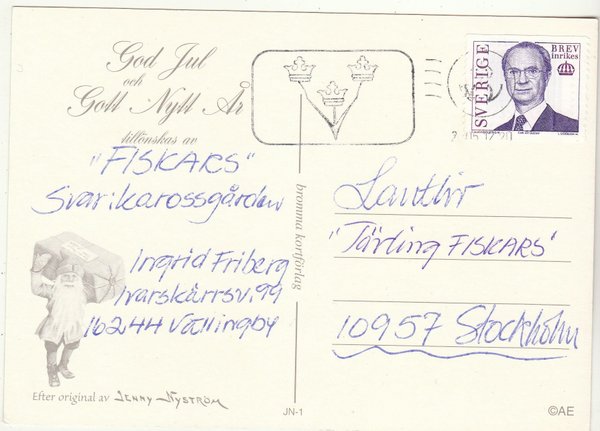 God Jul
och
Gott Nytt År
tillönskas av
"FISKARS"
Svarikarossgården
Ingrid Friberg
Ivarskärrsv. 99
162 44 Vällingby
Efter original av JENNY NYSTRÖM
bromma kortförlag
JN-1
SVERIGE
BREV
inrikes
Lantliv
"Tävling FISKARS"
109 57 Stockholm
©AE